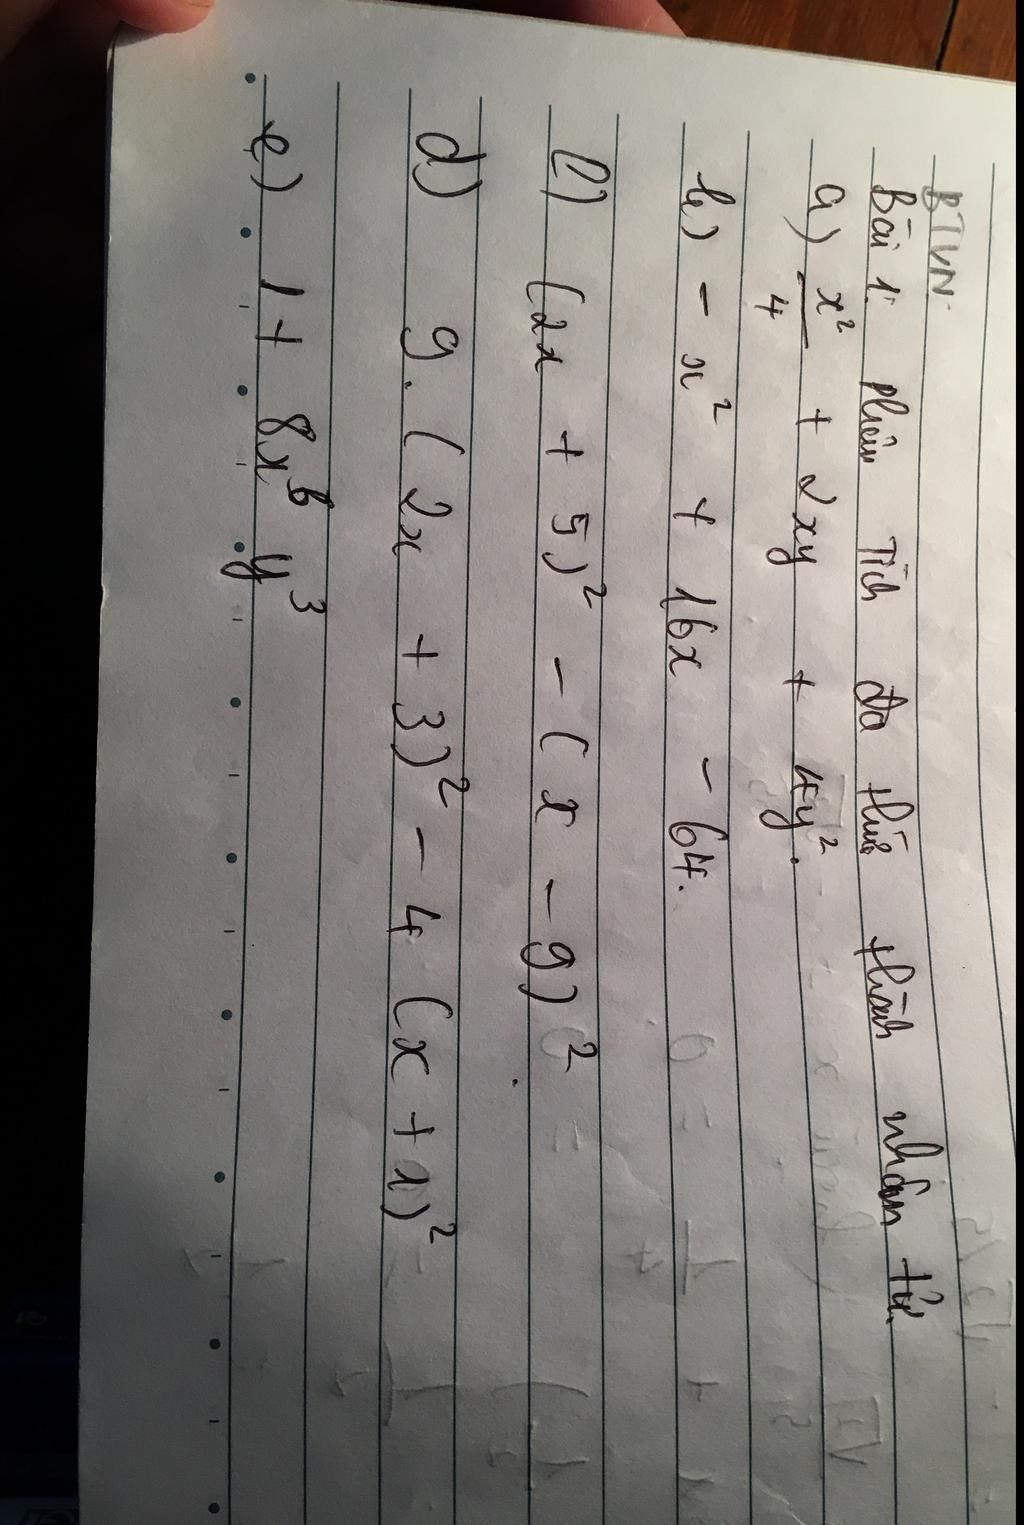 BTVN.
Bài 1: Phân Tích đa thức thành nhân tử.
a) x²/4 + 2xy + 4y².
b) - x² + 16x - 64.
c) (2x + 5)² - (x - 9)²
d) 9.(2x + 3)² - 4(x + 1)²
e) 1 + 8x⁶ y³